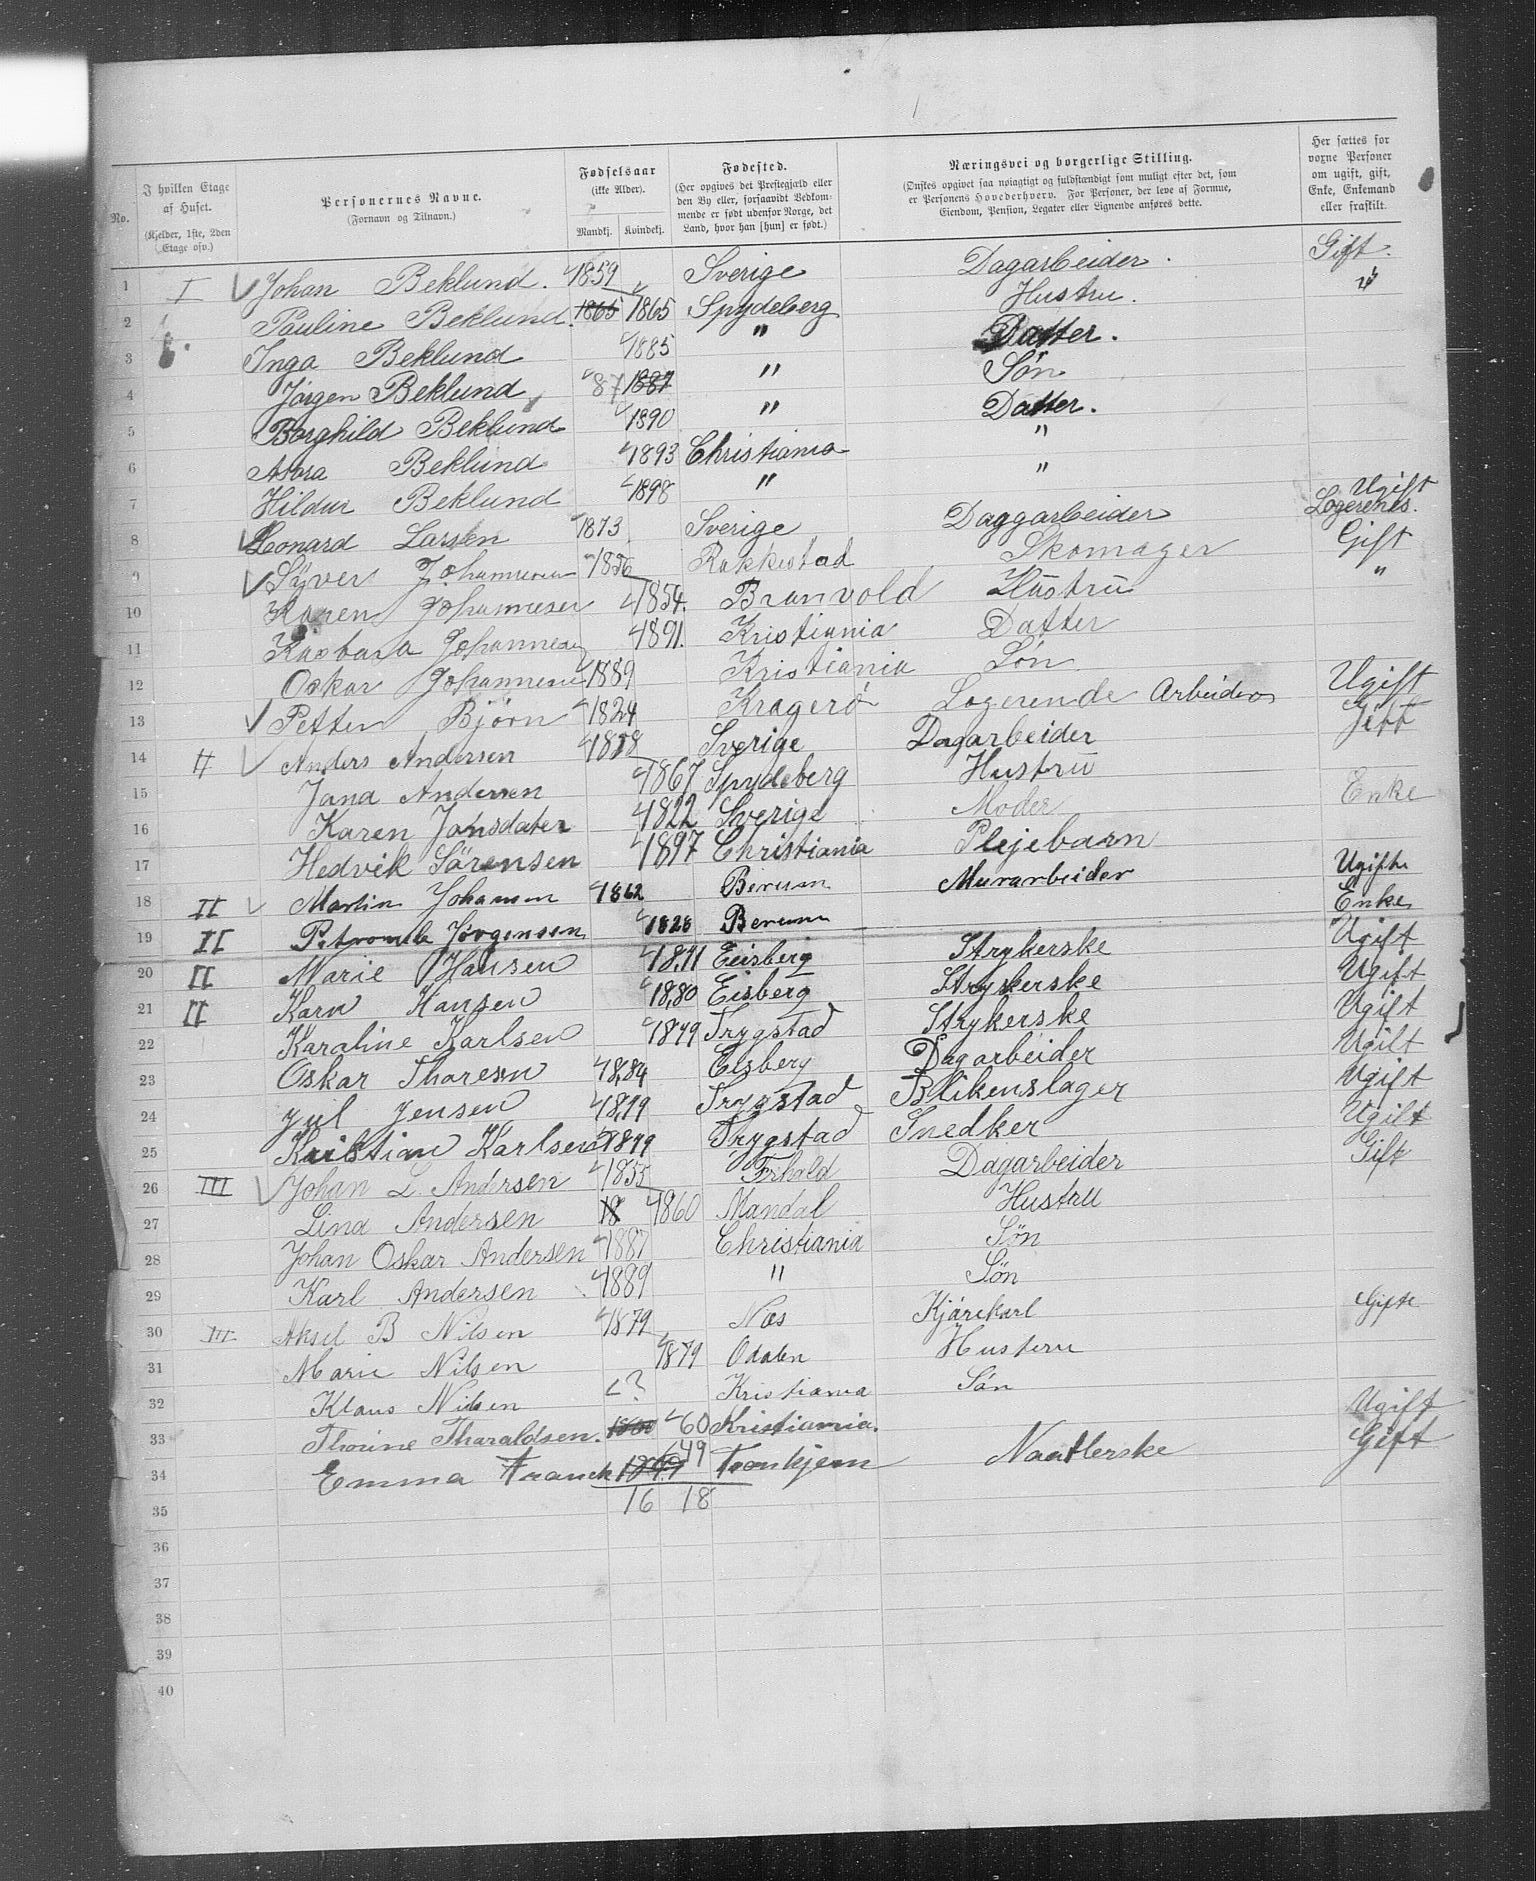 No. I hvilken Etage af Huset. (Kjelder, 1ste, 2den Etage osv.) Personernes Navne. (Fornavn og Tilnavn.) Fødselsaar (ikke Alder). Mandkj. Kvindekj. Fødested. (Her opgives det Prestegjæld eller den By eller, forsaavidt Vedkommende er født udenfor Norge, det Land, hvor han [hun] er født.) Næringsvei og borgerlige Stilling. (Ønskes opgivet saa nøiagtigt og fuldstændigt som muligt efter det, som er Personens Hovederhverv. For Personer, der leve af Formue, Eiendom, Pension, Legater eller Lignende anføres dette. Her sættes for voxne Personer om ugift, gift, Enke, Enkemand eller fraskilt.
1 I Johan Beklund. 1859 Sverige Dagarbeider. Gift.
2 Pauline Beklund. 1865 1865 Spydeberg Hustru. "
3 Inga Beklund 1885 " Datter.
4 Jørgen Beklund 87 1887 " Søn
5 Borghild Beklund 1890 " Datter.
6 Beklund 1893 Christiania "
7 Hildur Beklund 1898 " "
8 Leonard Larsen 1873 Sverige Daggarbeider Ugift Logerenes.
9 Syver Johannesen 1856 Rakkestad Skomager Gift
10 Karen Johannesen 1854. Branvold Hustru "
11 Johannesen 1891. Kristiania Datter
12 Oskar Johannesen 1889 Kristiania Søn
13 Petter Bjørn 1824 Kragerø Logerende Arbeider Ugift
14 II Anders Andersen Sverige Dagarbeider Gift
15 Jana Andersen 1867 Spydeberg Hustru
16 Karen Jonsdater 1822 Sverige Moder Enke
17 Hedvik Sørensen 1897 Christiania Plejebarn
18 II Martin Johansen 1862 Berum Murarbeider Ugifte
19 II Jørgensen 1828 Berum Enke
20 II Marie Hansen Eisberg Strykerske Ugift
21 II Karn Hansen 1880 Eisberg Strykerske Ugift
22 Karaline Karlsen 1879 Trygstad Strykerske Ugift
23 Oskar Thoresen 1884 Eisberg Dagarbeider Ugift
24 Jul Jensen 1879 Trygstad Blikenslager Ugift
25 Kristian Karlsen 1879 Trygstad Snedker Ugift
26 III Johan L. Andersen 1855 Dagarbeider Gift
27 Lina Andersen 18 1860 Mandal Hustru
28 Johan Oskar Andersen 1887 Christiania Søn
29 Karl Andersen 1889 " Søn
30 III Aksel B Nilsen 1879 Næs Kjørekarl Gifte
31 Marie Nilsen 1879 Odalen Hustru
32 Klaus Nilsen ? Kristiania Søn
33 Thorine Tharaldsen. 1860 60 Kristiania. Ugift
34 Emma Franck 1849 49 Tronhjem Naatlerske Gift
35 16 18
36
37
38
39
40